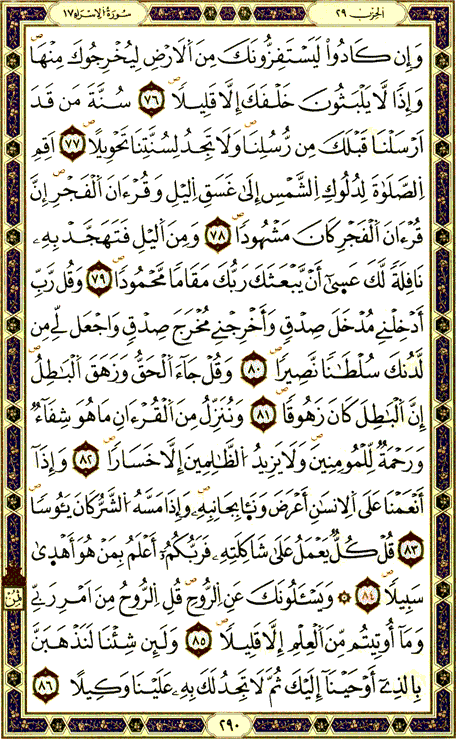 الحزب ٢٩
سُورَةُ الاِسْرَاء ١٧
وَإِن كَادُواْ لَيَسْتَفِزُّونَكَ مِنَ اَلَارْضِ لِيُخْرِجُوكَ مِنْهَا
وَإِذًا لَّا يَلْبَثُونَ خَلْفَكَ إِلَّا قَلِيلًا ٧٦ سُنَّةَ مَن قَدَ
اَرْسَلْنَا قَبْلَكَ مِن رُّسُلِنَا وَلَا تَجِدُ لِسُنَّتِنَا تَحْوِيلًا ٧٧ اَقِمِ
اِلصَّلَوٰةَ لِدُلُوكِ اِلشَّمْسِ إِلَىٰ غَسَقِ اِليْلِ وَقُرْءَانَ اَلْفَجْرِ إِنَّ
قُرْءَانَ اَلْفَجْرِ كَانَ مَشْهُودًا ٧٨ وَمِنَ اَليْلِ فَتَهَجَّدْ بِهِۦ
نَافِلَةً لَّكَ عَسَىٰ أَنْ يَّبْعَثَكَ رَبُّكَ مَقَامًا مَّحْمُودًا ٧٩ وَقُل رَّبِّ
أَدْخِلْنِے مُدْخَلَ صِدْقٍ وَأَخْرِجْنِے مُخْرَجَ صِدْقٍ وَاجْعَل لِّے مِن
لَّدُنكَ سُلْطَٰنًا نَّصِيرًا ٨٠ وَقُلْ جَآءَ اَلْحَقُّ وَزَهَقَ اَلْبَٰطِلُ
إِنَّ اَلْبَٰطِلَ كَانَ زَهُوقًا ٨١ وَنُنَزِّلُ مِنَ اَلْقُرْءَانِ مَا هُوَ شِفَآءٌ
وَرَحْمَةٌ لِّلْمُومِنِينَ وَلَا يَزِيدُ اُلظَّٰلِمِينَ إِلَّا خَسَارًا ٨٢ وَإِذَآ
أَنْعَمْنَا عَلَى اَلِانسَٰنِ أَعْرَضَ وَنَـَٔا بِجَانِبِهِۦ وَإِذَا مَسَّهُ اُلشَّرُّ كَانَ يَـُٔوسًا
٨٣ قُلْ كُلٌّ يَعْمَلُ عَلَىٰ شَاكِلَتِهِۦ فَرَبُّكُمُۥٓ أَعْلَمُ بِمَنْ هُوَ أَهْدَىٰ
سَبِيلًا ٨٤ ۞ وَيَسْـَٔلُونَكَ عَنِ اِلرُّوحِ قُلِ اِلرُّوحُ مِنَ اَمْرِ رَبِّے
وَمَآ أُوتِيتُم مِّنَ اَلْعِلْمِ إِلَّا قَلِيلًا ٨٥ وَلَئِن شِئْنَا لَنَذْهَبَنَّ
بِالذِےٓ أَوْحَيْنَآ إِلَيْكَ ثُمَّ لَا تَجِدُ لَكَ بِهِۦ عَلَيْنَا وَكِيلًا ٨٦
٢٩٠